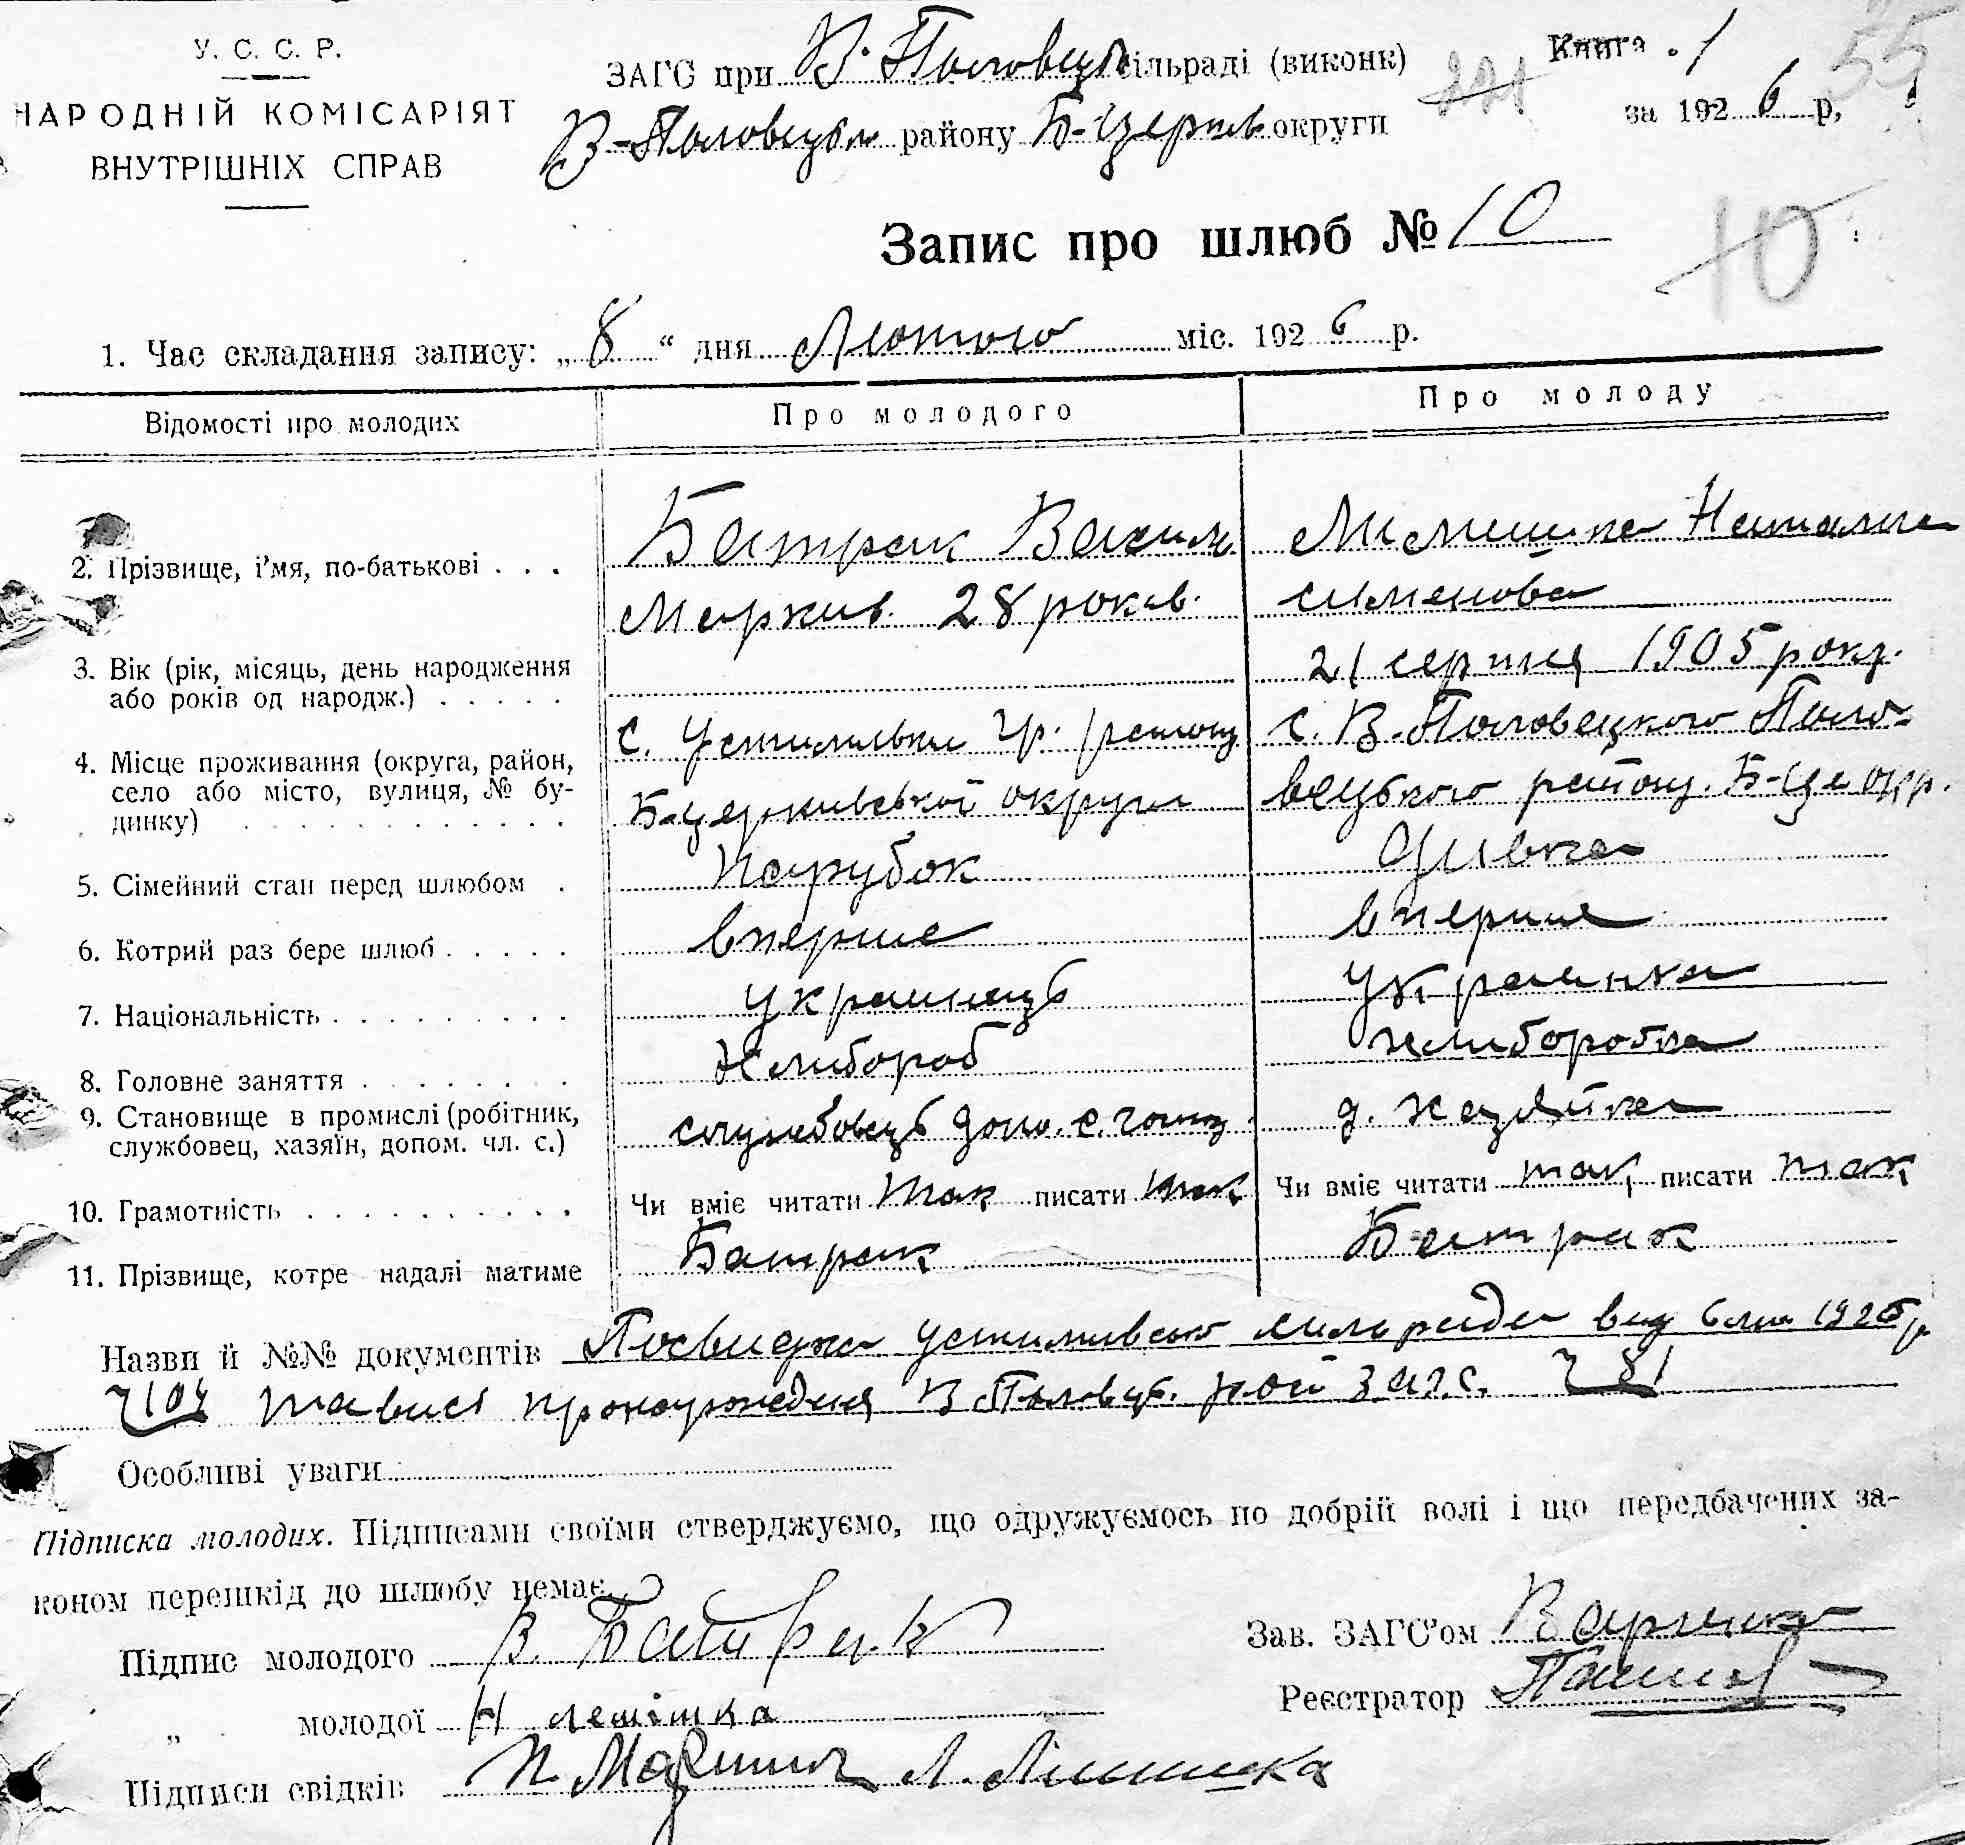 У. С. С. Р.
НАРОДНІЙ КОМІСАРІЯТ
ВНУТРІШНІХ СПРАВ
ЗАГС при В. Половецьк сільраді (виконк)
В-Половецьк району Б-Церків округи
Книга 1
за 1926 р,
55
221
Запис про шлюб № 10
10
1. Час складання запису: „8“ дня Лютого міс. 1926 р.
Відомості про молодих Про молодого Про молоду
2. Прізвище, і'мя, по-батькові . . . Батрак Василь Маркив. 28 роков. Наталка сименова
3. Вік (рік, місяць, день народження
або років од народж.) . . . . . 21 серпня 1905 року.
4. Місце проживання (округа, район,
село або місто, вулиця, № бу-
динку) . . . . . . . . . . . .
с. Устимивки Гр. району с. В-Половецкого Поло-
Б-церкивської округи вецького району. Б-Це окр.
5. Сімейний стан перед шлюбом . Парубок Дивка
6. Котрий раз бере шлюб . . . . . вперше вперше
7. Національність . . . . . . . . . украинець украинка
8. Головне заняття . . . . . . . хлибороб хлиборобка
9. Становище в промислі (робітник,
службовец, хазяїн, допом. чл. с.) службовець д. хазяйка
10. Грамотність . . . . . . . . . . Чи вміє читати так писати так Чи вміє читати так писати так
11. Прізвище, котре надалі матиме Батрак Батрак
Назви й №№ документів Посвидка Устимивсько сильради вид 6 лют 1926 р.
ч 104 В Половць. ЗАГС. ч 81
Особливі уваги
Підписка молодих. Підписами своїми стверджуємо, що одружуємось по добрій волі і що передбачених за-
коном перешкід до шлюбу немає.
Підпис молодого В. Батрак
Зав. ЗАГС'ом
„ молодої Н лемішка
Реєстратор
Підписи свідків